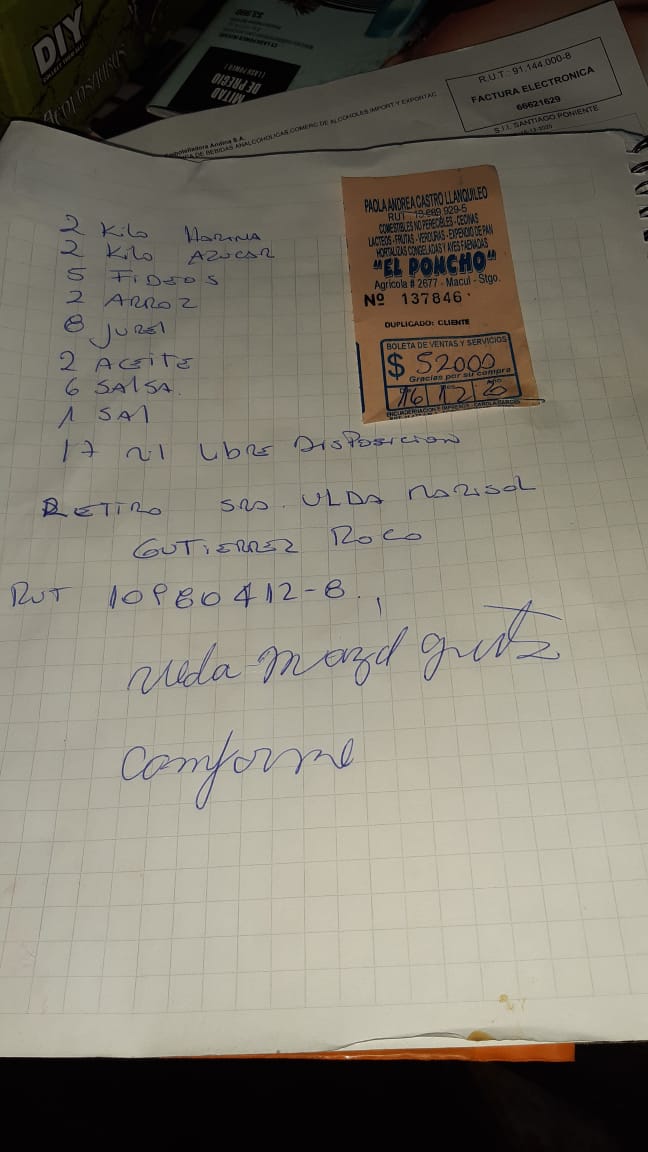 DIY
MITAD
DE PRECIO
R.U.T.: 91.144.000-8
FACTURA ELECTRONICA
66621629
S.I.I. SANTIAGO PONIENTE
Embotelladora Andina S.A.
DE BEBIDAS ANALCOHOLICAS, COMERC DE ALCOHOLES IMPORT Y EXPORTAC
PAOLA ANDREA CASTRO LLANQUILEO
COMESTIBLES NO PERECIBLES - CECINAS
LACTEOS - FRUTAS - VERDURAS - EXPENDIO DE PAN
HORTALIZAS CONGELADAS Y AVES FAENADAS
"EL PONCHO"
Agrícola # 2677 - Macul - Stgo.
Nº 137846
DUPLICADO: CLIENTE
BOLETA DE VENTAS Y SERVICIOS
$ 52000
Gracias por su compra
16 12 20
2 Kilo HARINA
2 Kilo AZUCAR
5 FIDEOS
2 ARROZ
8 JUREL
2 ACEITE
6 SALSA.
1 SAL
17 LIBRE DISPOSICION
RETIRO SRA. ULDA MARISOL
GUTIERREZ ROCO
RUT 10980412-8.
conforme